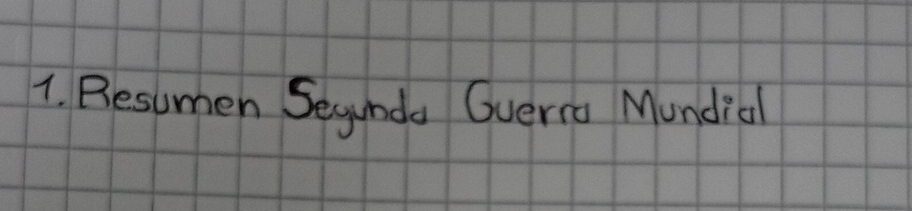 1. Resumen Segunda Guerra Mundial